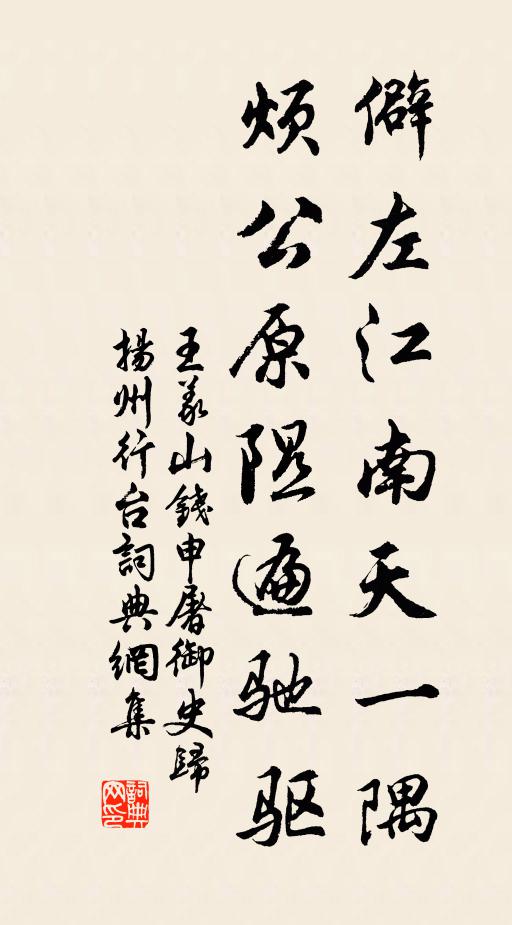 僻左江南天一隅
煩公原隰遍驰驱
王義山錢申屠御史歸
揚州行台詞典網集
詞典网印